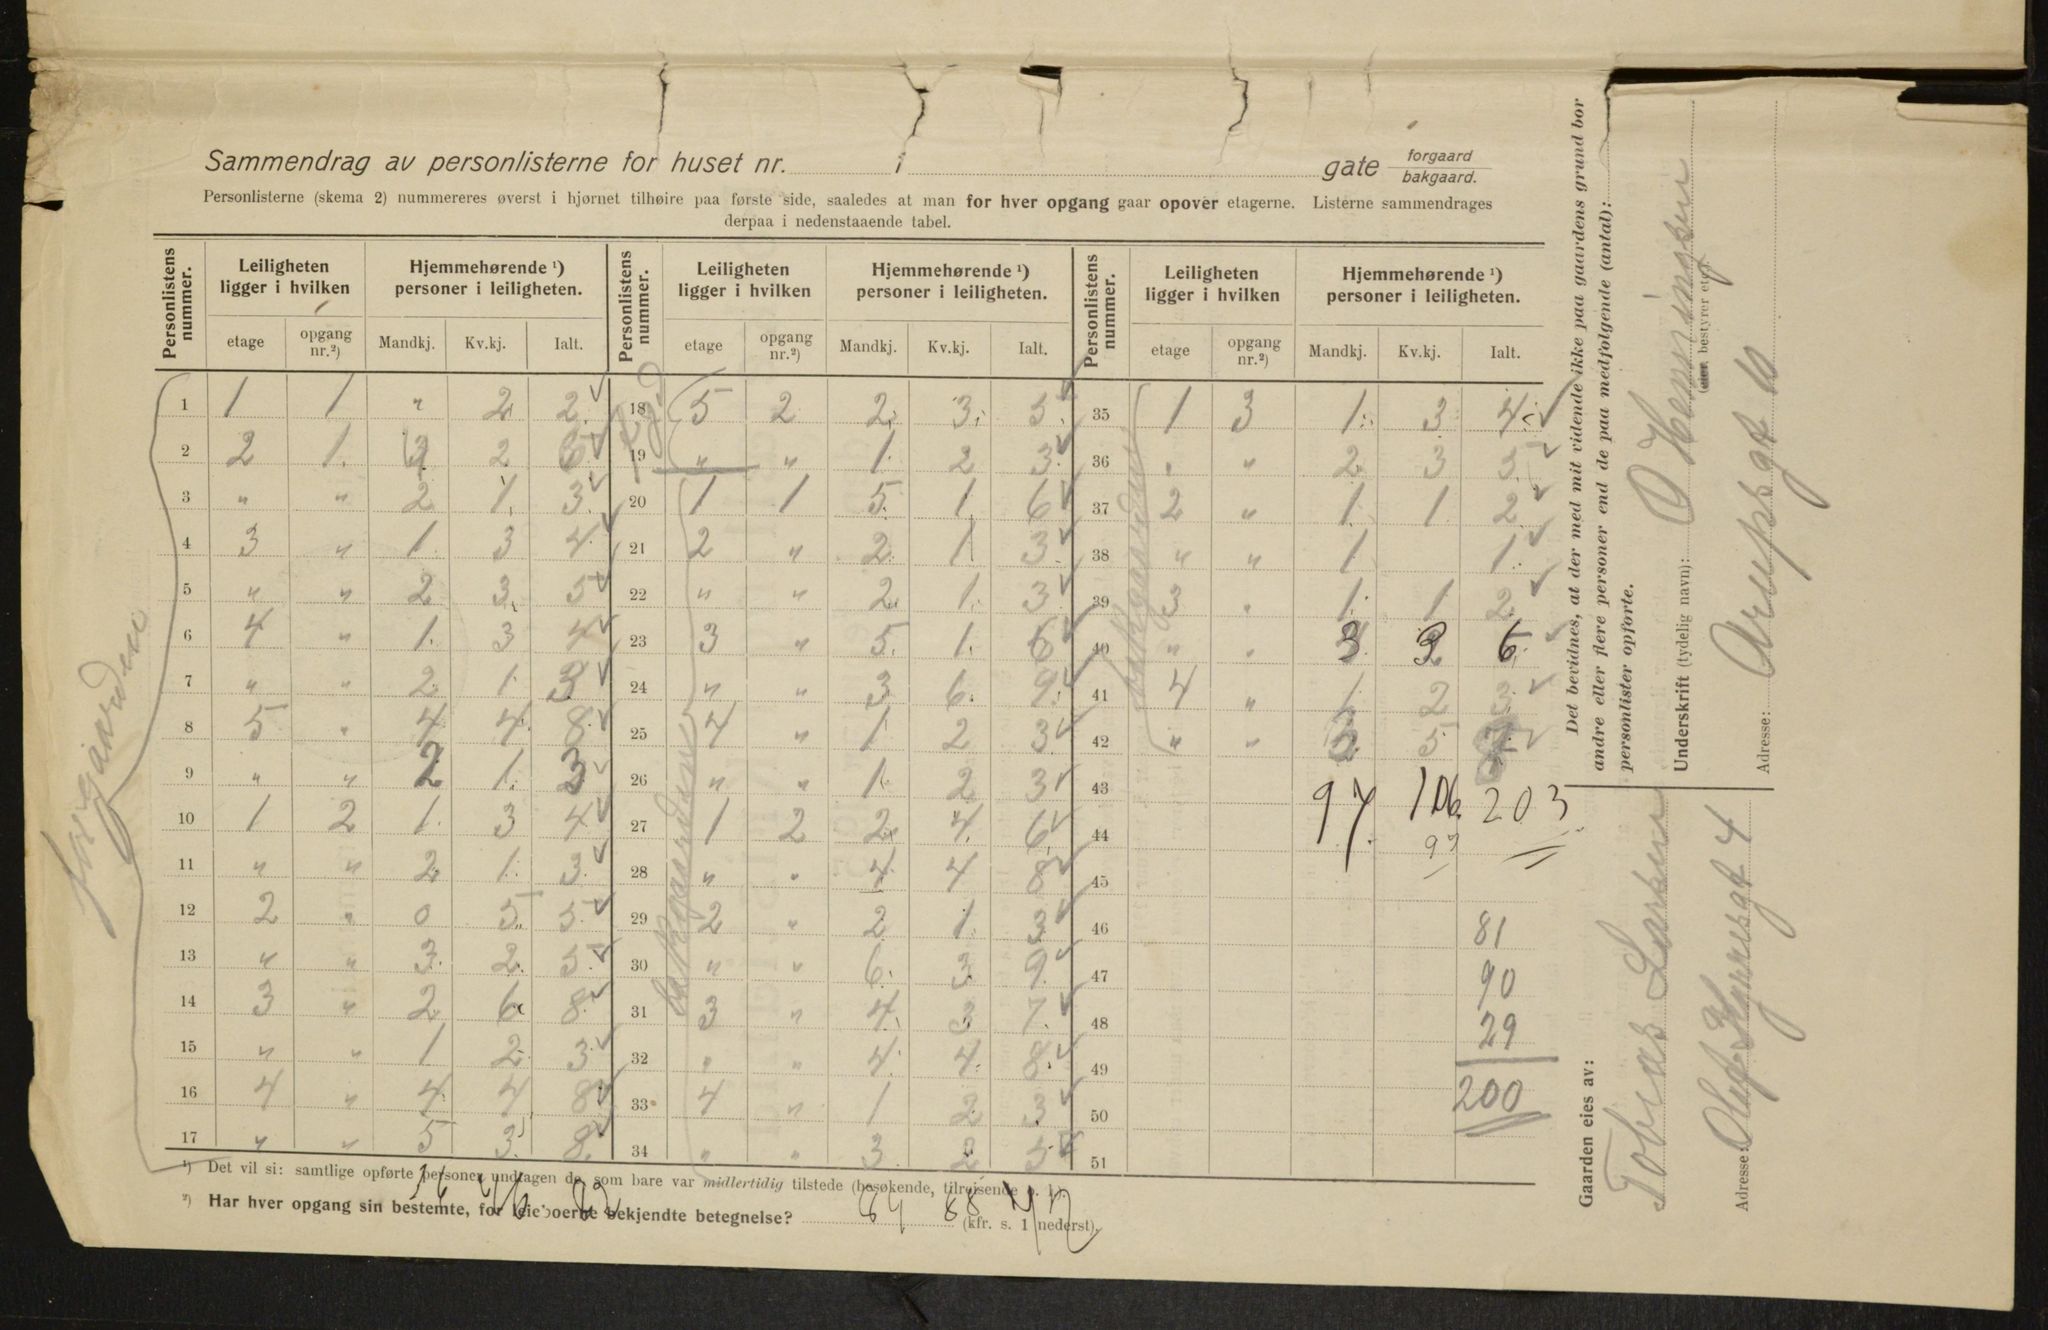 Sammendrag av personlisterne for huset nr. i gate forgaard bakgaard.
Personlisterne (skema 2) nummereres øverst i hjørnet tilhøire paa første side, saaledes at man for hver opgang gaar opover etagerne. Listerne sammendrages
derpaa i nedenstaaende tabel.
Personlistens nummer. Leiligheten ligger i hvilken Hjemmehørende ¹) personer i leiligheten. Personlistens nummer. Leiligheten ligger i hvilken Hjemmehørende ¹) personer i leiligheten. Personlistens nummer. Leiligheten ligger i hvilken Hjemmehørende ¹) personer i leiligheten.
etage opgang nr.²) Mandkj. Kv.kj. Ialt. etage opgang nr.²) Mandkj. Kv.kj. Ialt. etage opgang nr.²) Mandkj. Kv.kj. Ialt.
1 1 1 " 2 2 18 5 2 2 3 5 35 1 3 1 3 4
2 2 1 2 19 " " 1 2 3 36 " " 2 3 5
3 " " 2 1 3 20 1 1 5 1 6 37 2 " 1 1 2
4 3 " 1 3 4 21 2 " 2 1 3 38 " " 1 1
5 " " 2 3 5 22 " " 2 1 3 39 3 " 1 1 2
6 4 " 1 3 4 23 3 " 5 1 6 40 " " 3
7 " " 2 1 3 24 " " 3 6 9 41 4 " 1 2 3
8 5 " 4 4 8 25 4 " 1 2 3 42 " " 5
9 " " 2 1 3 26 " " 1 2 3 43 97 106 203
10 1 2 1 3 4 27 1 2 2 4 6 44 97
11 " " 2 1 3 28 " " 4 4 8 45
12 2 " 0 5 5 29 2 " 2 1 3 46 81
13 " " 3 2 5 30 " " 6 3 9 47 90
14 3 " 2 6 8 31 3 " 4 3 7 48 29
15 " " 1 2 3 32 " " 4 4 8 49
16 4 " 4 4 8 33 4 " 1 2 3 50 200
17 " " 5 3 8 34 " " 3 2 5 51
forgaarden
bakgaarden
bakgaarden
¹) Det vil si: samtlige opførte personer undtagen de som bare var midlertidig tilstede (besøkende, tilreisende
²) Har hver opgang sin bestemte, for beboerne bekjendte betegnelse? (kfr. s. 1 nederst).
Det bevidnes, at der med mit vidende ikke paa gaardens grund bor
andre eller flere personer end de paa medfølgende (antal):
personlister opførte.
Underskrift (tydelig navn): O Henningsen
(eier, bestyrer etc.)
Adresse: Arupsgt 10
Gaarden eies av:
Tobias Larsen
Adresse: